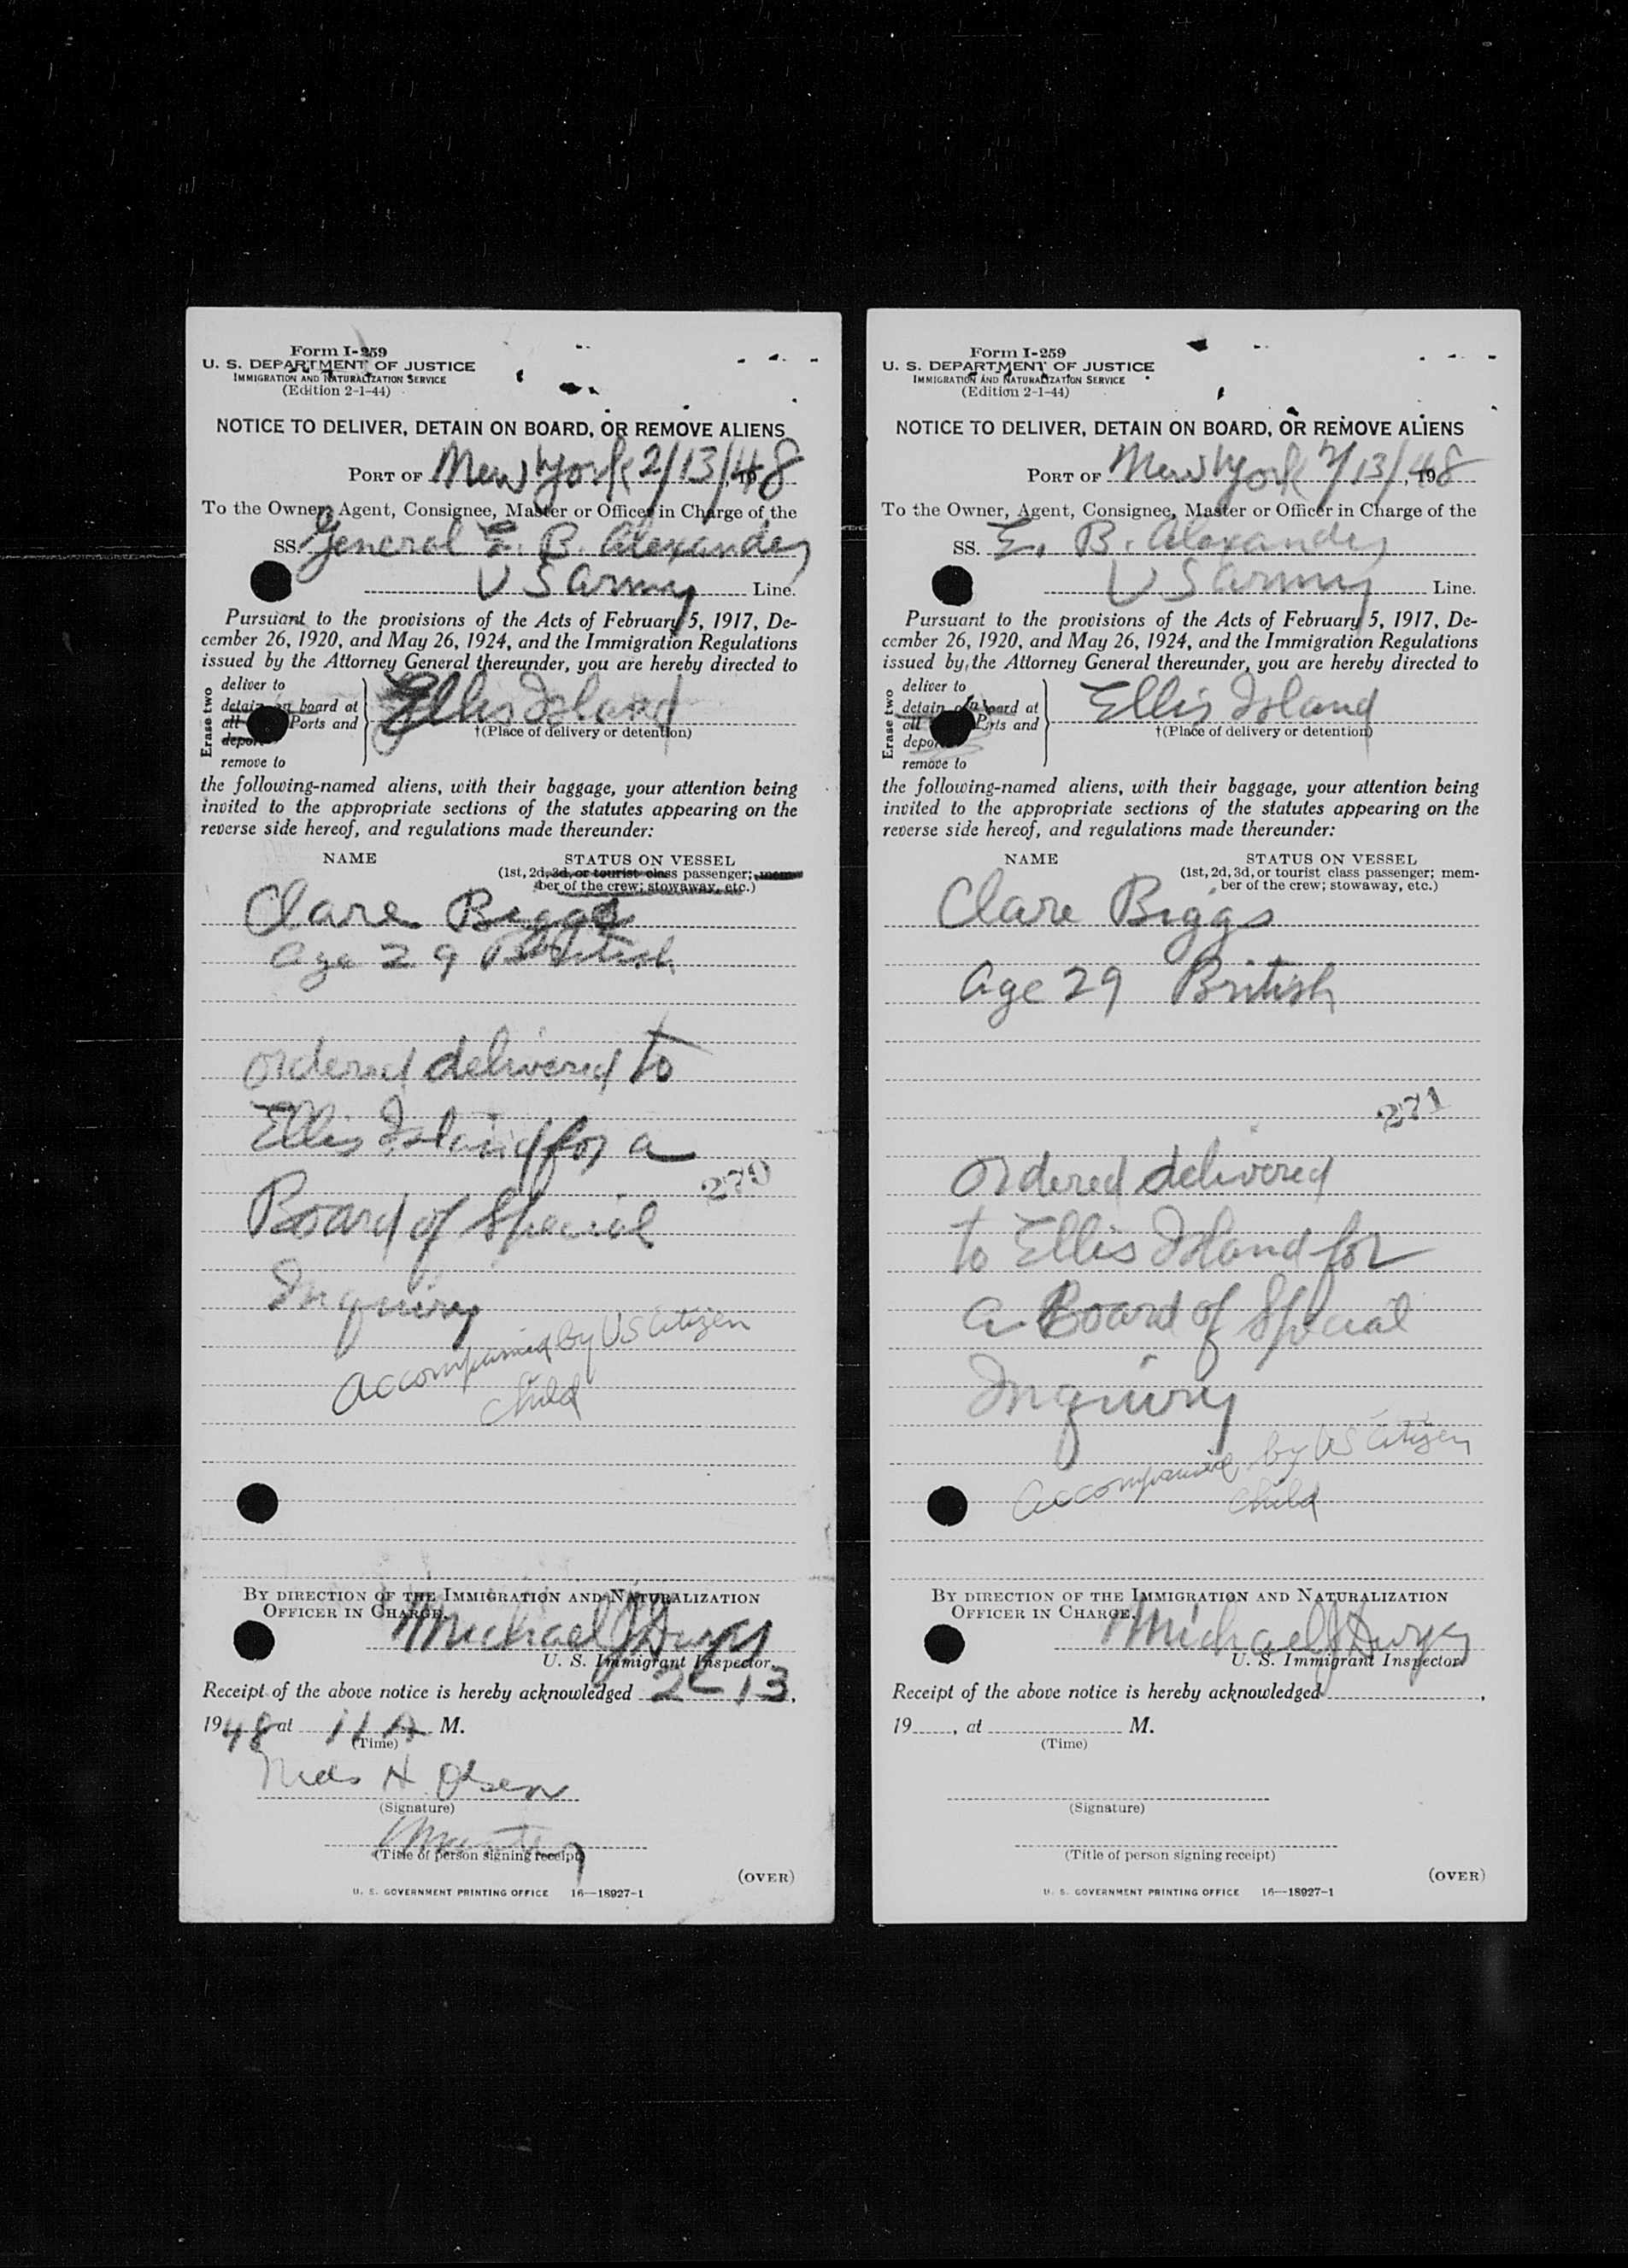 Form I-259
U. S. DEPARTMENT OF JUSTICE
IMMIGRATION AND NATURALIZATION SERVICE
(Edition 2-1-44)
NOTICE TO DELIVER, DETAIN ON BOARD, OR REMOVE ALIENS
PORT OF New York 2/13/48, 19
To the Owner, Agent, Consignee, Master or Officer in Charge of the
SS. General E. B. Alexander
US Army Line.
Pursuant to the provisions of the Acts of February 5, 1917, De-
cember 26, 1920, and May 26, 1924, and the Immigration Regulations
issued by the Attorney General thereunder, you are hereby directed to
Erase two
deliver to
detain on board at
all Ports and
depor
remove to
Ellis Island
†(Place of delivery or detention)
the following-named aliens, with their baggage, your attention being
invited to the appropriate sections of the statutes appearing on the
reverse side hereof, and regulations made thereunder:
NAME STATUS ON VESSEL
(1st, 2d, 3d, or tourist class passenger; mem-
ber of the crew; stowaway, etc.)
Clare Biggs
age 29 British
ordered delivered to
Ellis Island for a
270
Board of Special
Inquiry
accompanied by US Citizen
child
BY DIRECTION OF THE IMMIGRATION AND NATURALIZATION
OFFICER IN CHARGE.
Michael J
U. S. Immigrant Inspector.
Receipt of the above notice is hereby acknowledged 2-13,
1948 at 11 A M.
(Time)
H Olsen
(Signature)
(Title of person signing receipt)
(OVER)
U. S. GOVERNMENT PRINTING OFFICE 16—18927-1
Form I-259
U. S. DEPARTMENT OF JUSTICE
IMMIGRATION AND NATURALIZATION SERVICE
(Edition 2-1-44)
NOTICE TO DELIVER, DETAIN ON BOARD, OR REMOVE ALIENS
PORT OF New York 2/13/, 1948
To the Owner, Agent, Consignee, Master or Officer in Charge of the
SS. E. B. Alexander
US Army Line.
Pursuant to the provisions of the Acts of February 5, 1917, De-
cember 26, 1920, and May 26, 1924, and the Immigration Regulations
issued by the Attorney General thereunder, you are hereby directed to
Erase two
deliver to
detain on board at
all Ports and
depor
remove to
Ellis Island
†(Place of delivery or detention)
the following-named aliens, with their baggage, your attention being
invited to the appropriate sections of the statutes appearing on the
reverse side hereof, and regulations made thereunder:
NAME STATUS ON VESSEL
(1st, 2d, 3d, or tourist class passenger; mem-
ber of the crew; stowaway, etc.)
Clare Biggs
age 29 British
271
ordered delivered
to Ellis Island for
a Board of Special
Inquiry
accompanied by US Citizen
child
BY DIRECTION OF THE IMMIGRATION AND NATURALIZATION
OFFICER IN CHARGE.
Michael J
U. S. Immigrant Inspector.
Receipt of the above notice is hereby acknowledged ,
19 , at M.
(Time)
(Signature)
(Title of person signing receipt)
(OVER)
U. S. GOVERNMENT PRINTING OFFICE 16—18927-1